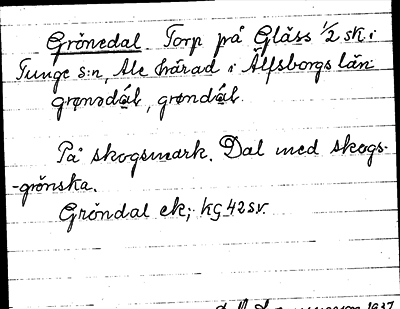 Grönedal Torp på Gläss 1/2 sk. i
Tunge s:n, Ale härad i Älfsborgs län
grønədɑ́l, grøndɑ́l.
På skogsmark. Dal med skogs-
-grönska.
Gröndal ek; kg 42 sv.
1937